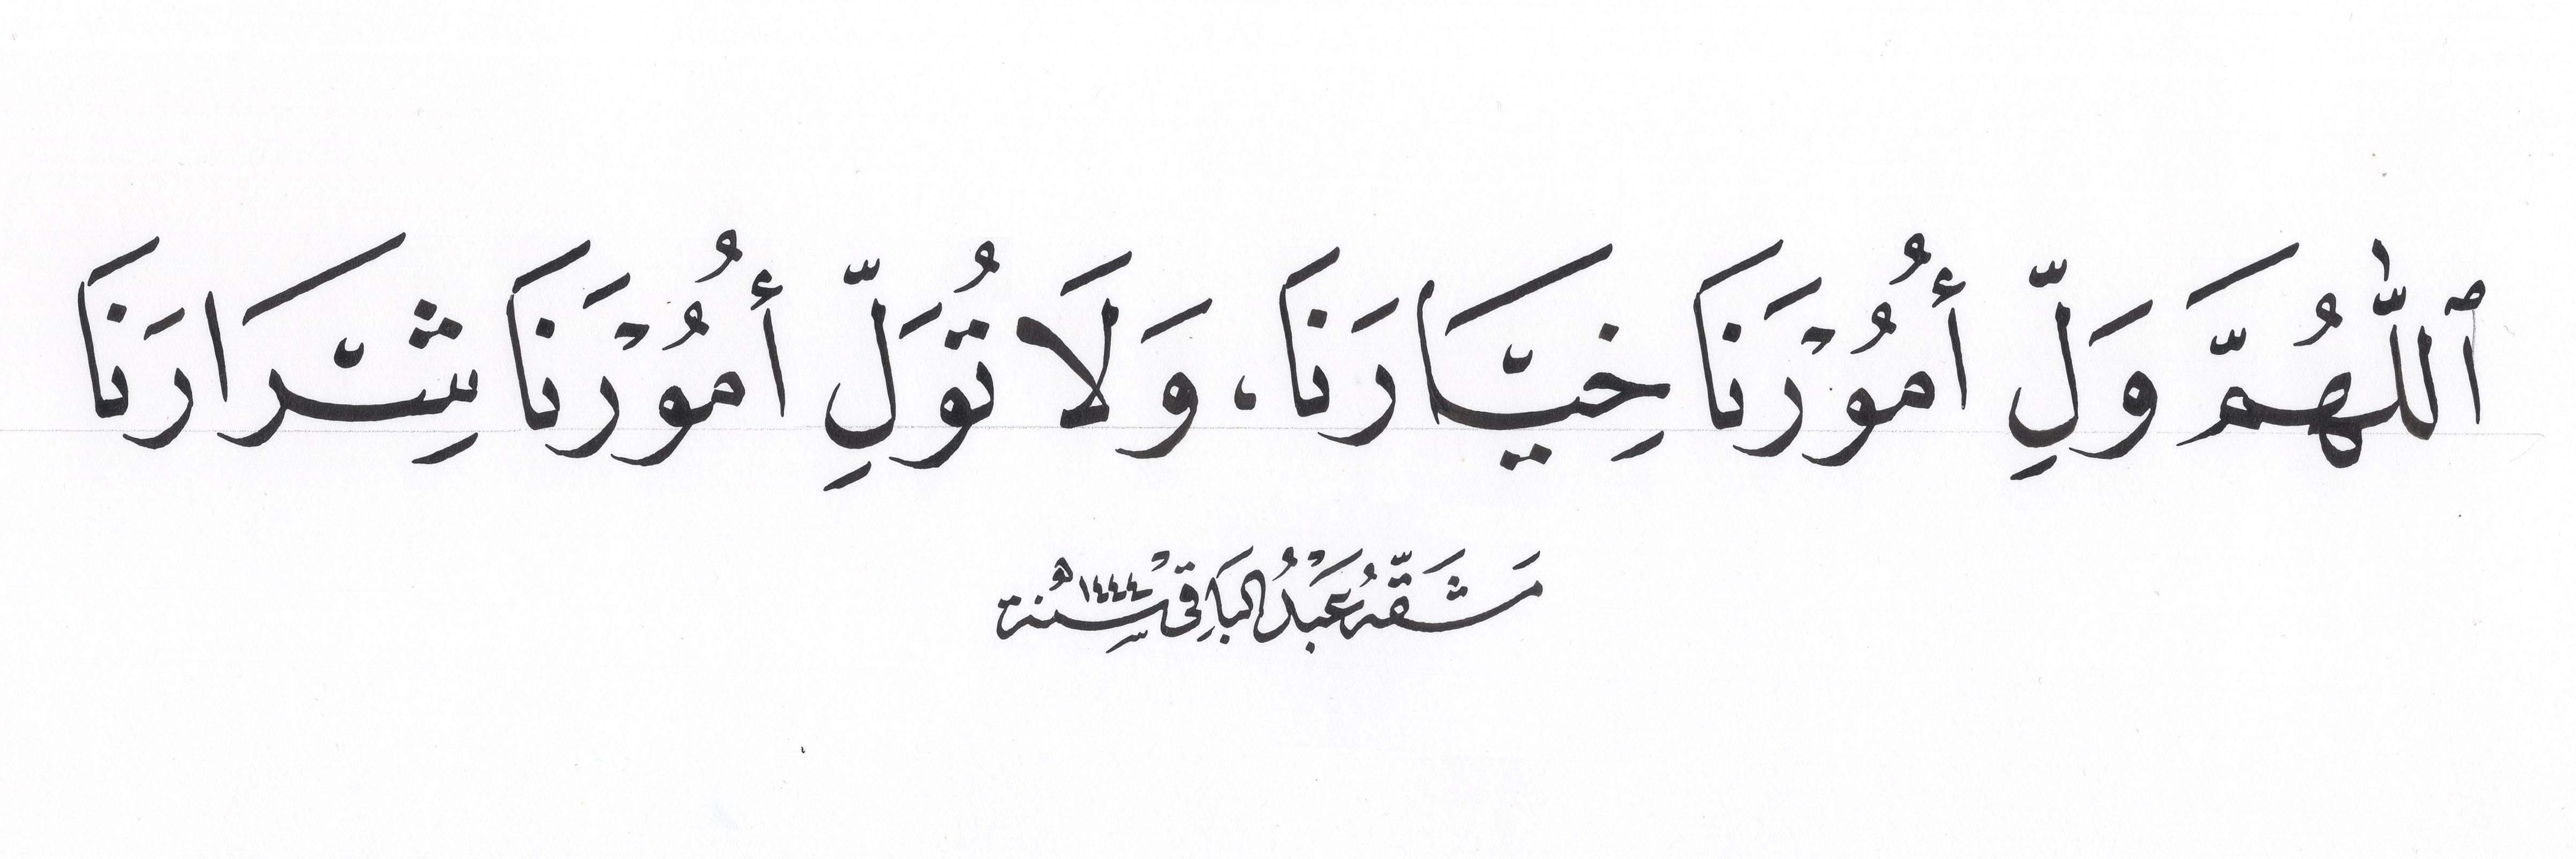 ٱللّٰهُمَّ وَلِّ أُمُوْرَنَا خِيَّارَنَا، وَلَا تُوَلِّ أُمُوْرَنَا شِّرَارَنَا
مَشَقَّهُ عَبْدُ البَاقِي سْنة ١٤٤٤هـ